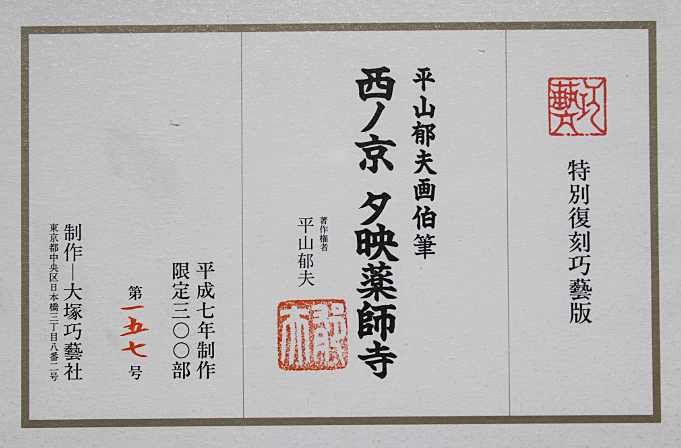 特別復刻巧藝版
平山郁夫画伯筆
西ノ京 夕映薬師寺
著作権者
平山郁夫
平成七年制作
限定三〇〇部
第一五七号
制作―大塚巧藝社
東京都中央区日本橋三丁目八番二号